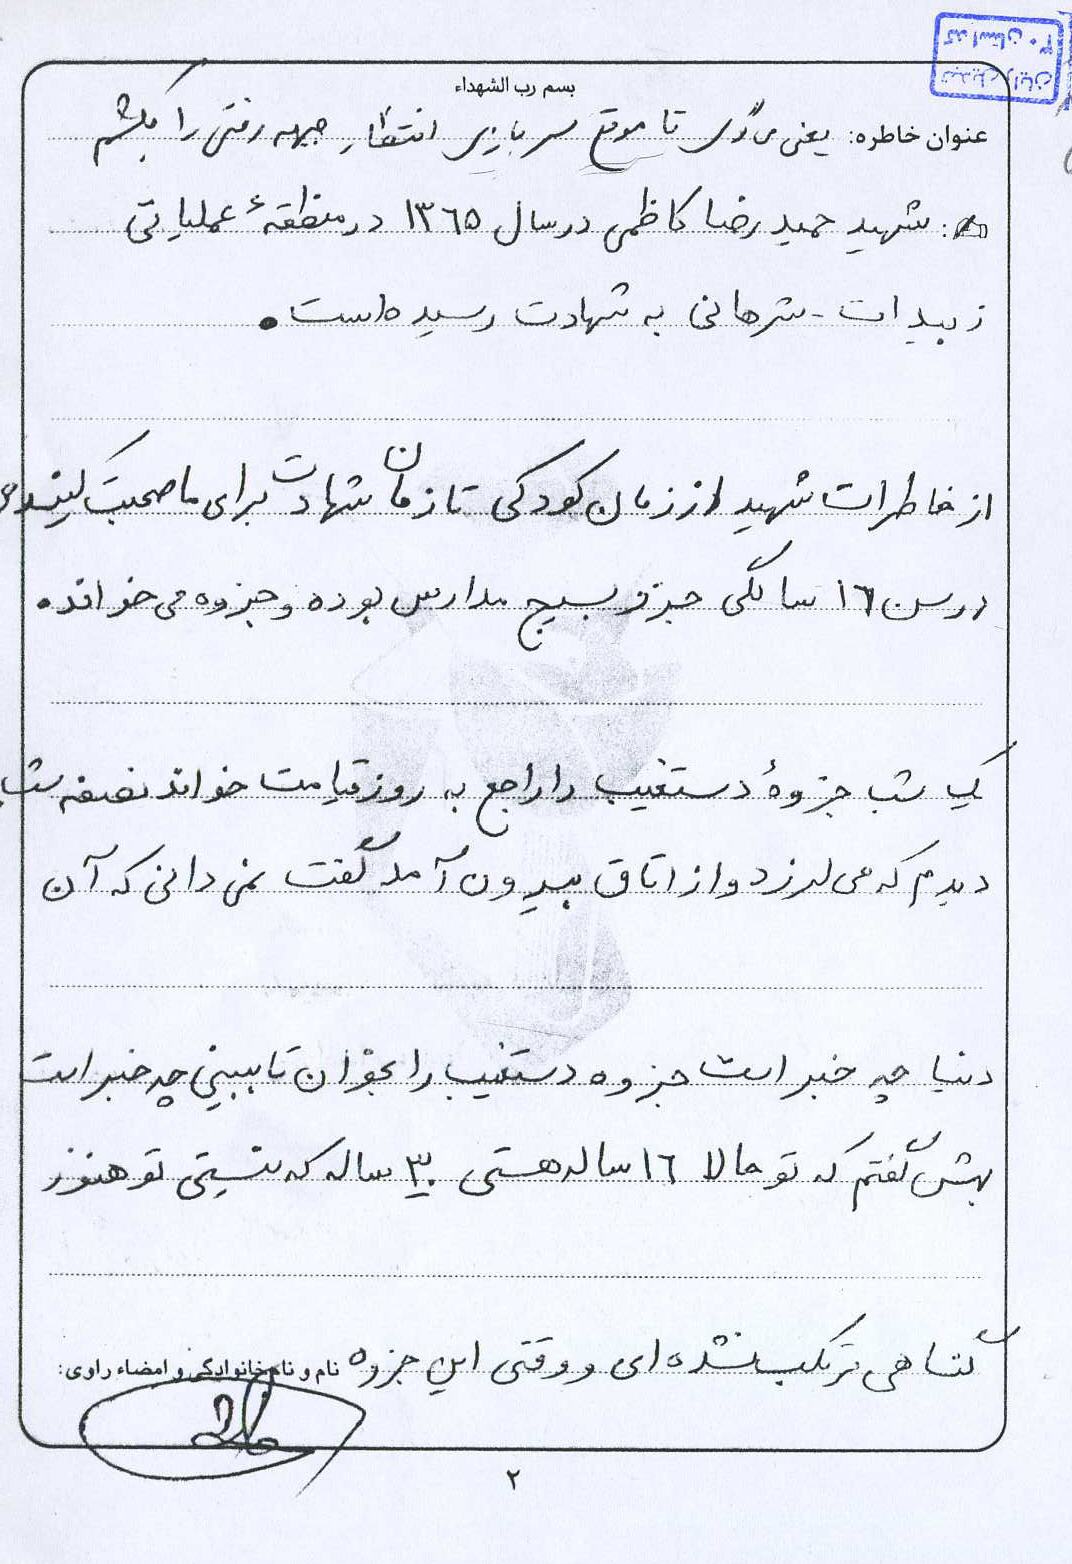 تبدیل رایان
کد استان ۳۰
بسم رب الشهداء
عنوان خاطره: یعنی می‌گوی تا موقع سربازی انتظار جبهه رفتن را بکشم
: شهید حمید رضا کاظمی در سال ۱۳۶۵ در منطقهٔ عملیاتی
زبیدات - شرهانی به شهادت رسیده است.
از خاطرات شهید از زمان کودکی تا زمان شهادت برای ما صحبت کنید
در سن ۱۶ سالگی جزو بسیج مدارس بوده و جزوه می خوانده.
یک شب جزوهٔ دستغیب را راجع به روز قیامت خواند نصفه شب
دیدم که می لرزد و از اتاق بیرون آمد گفت نمی دانی که آن
دنیا چه خبر است جزوه دستغیب را بخوان تا ببینی چه خبر است
بهش گفتم که تو حالا ۱۶ ساله هستی ۳۰ ساله که نیستی تو هنوز
گناهی مرتکب نشده ای و وقتی این جزوه
نام و نام خانوادگی و امضاء راوی:
۲